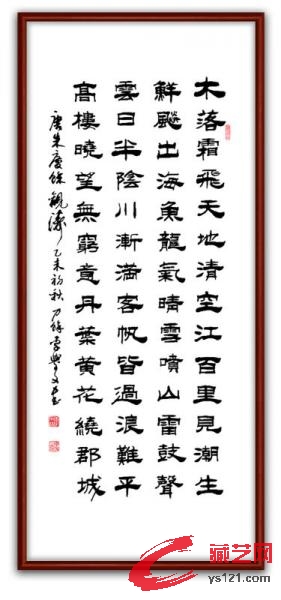 木落霜飛天地清空江百里見潮生
鮮飈出海魚龍氣晴雪噴山雷鼓聲
雲日半陰川漸滿客帆皆過浪難平
髙樓曉望無窮意丹葉黄花繞郡城
唐朱慶餘觀濤 乙未初秋
藏艺网
ys121.com